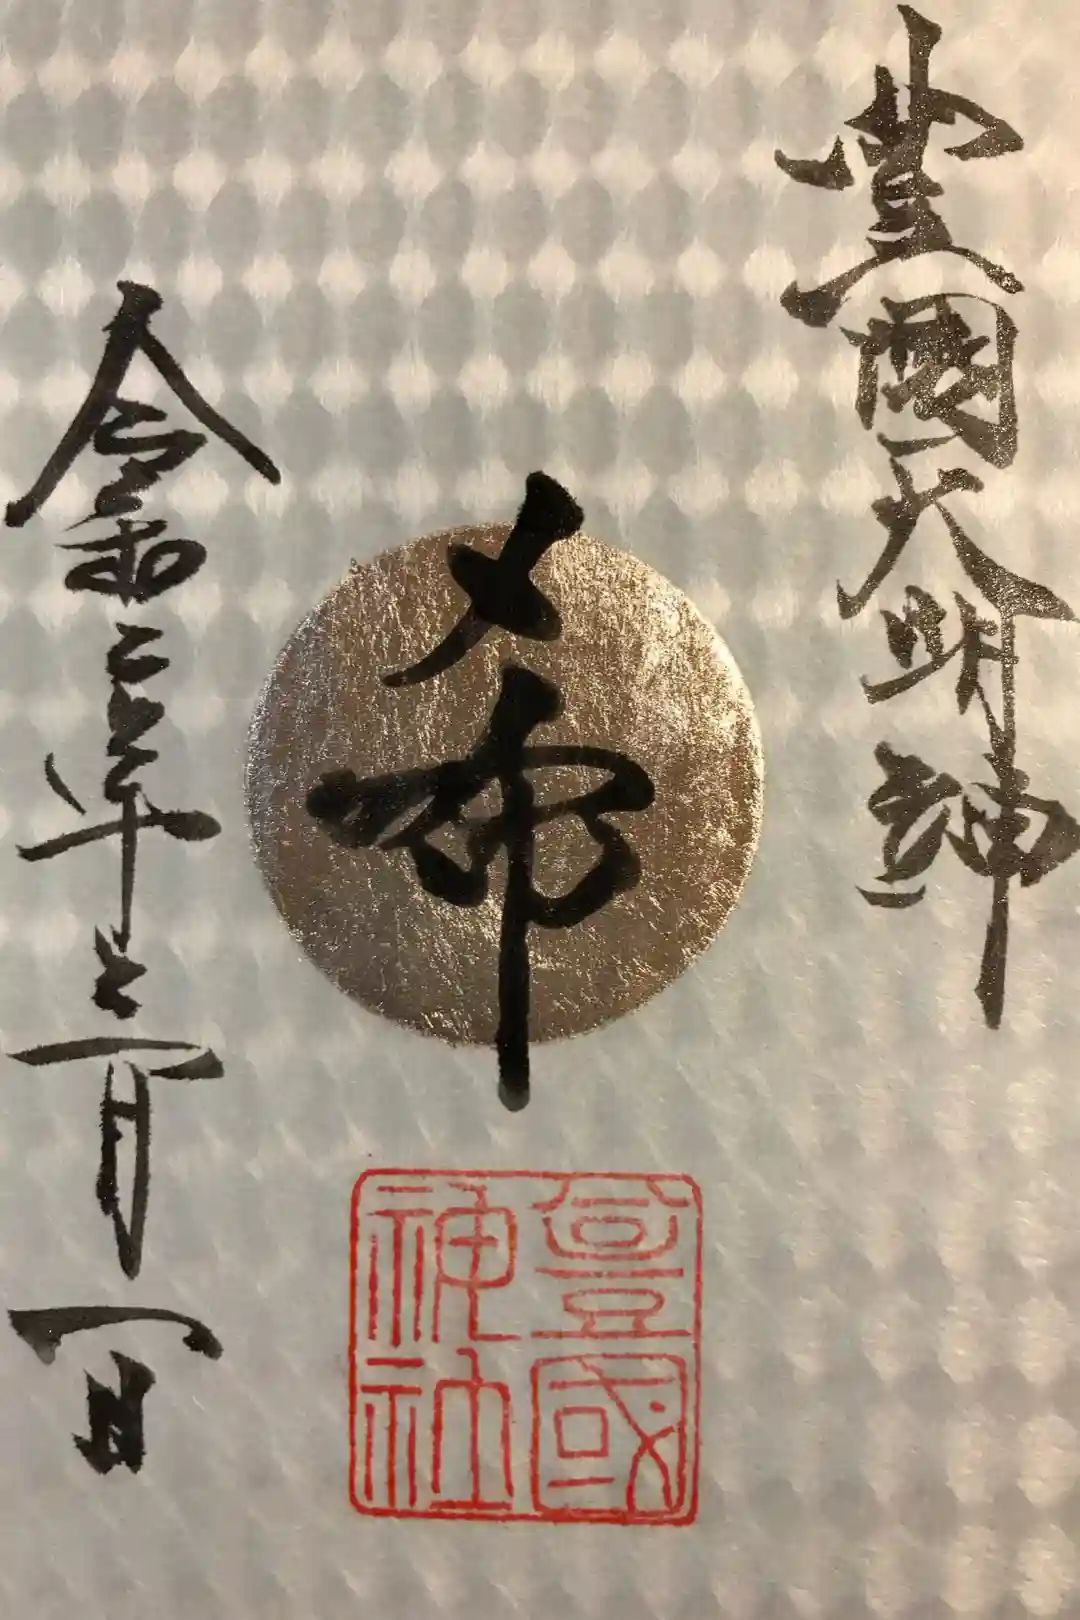 豊國大明神
希
令和二年十二月一日
豊國
神社